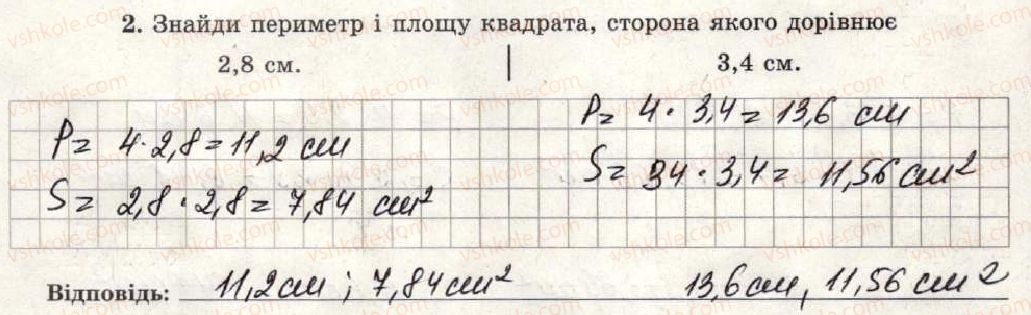 2. Знайди периметр і площу квадрата, сторона якого дорівнює
2,8 см. | 3,4 см.
P= 4·2,8=11,2 см
S= 2,8·2,8= 7,84 см²
P= 4·3,4=13,6 см
S= 34·3,4= 11,56 см²
Відповідь: 11,2 см; 7,84 см² 13,6 см, 11,56 см²